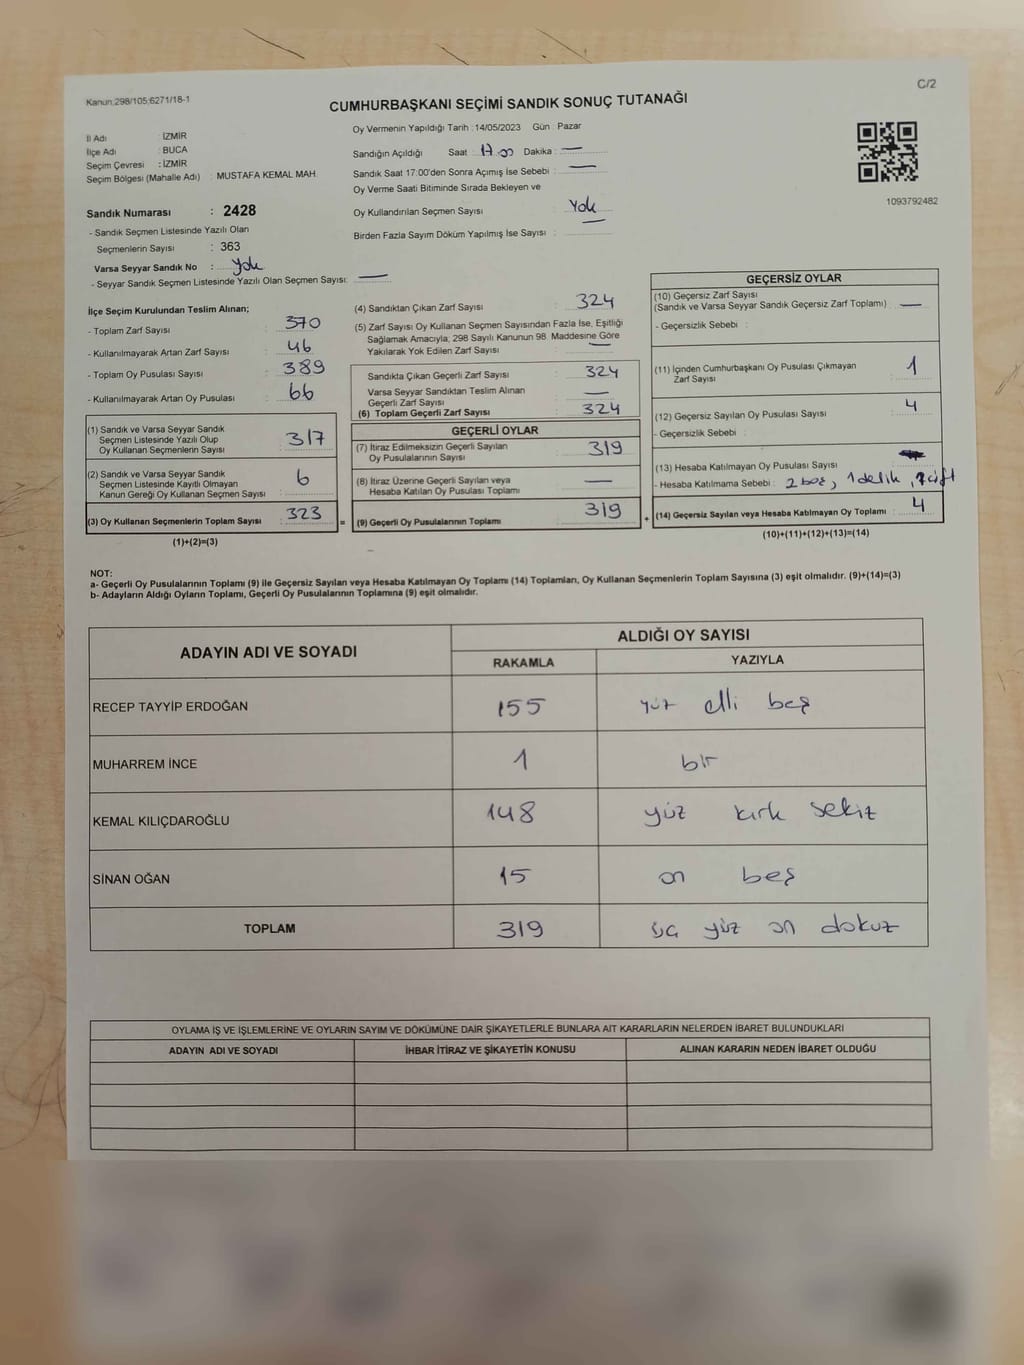 Kanun:298/105;6271/18-1
C/2
CUMHURBAŞKANI SEÇİMİ SANDIK SONUÇ TUTANAĞI
İl Adı : İZMİR
İlçe Adı : BUCA
Seçim Çevresi : İZMİR
Seçim Bölgesi (Mahalle Adı) : MUSTAFA KEMAL MAH.
Sandık Numarası : 2428
- Sandık Seçmen Listesinde Yazılı Olan
Seçmenlerin Sayısı : 363
Varsa Seyyar Sandık No : Yok
- Seyyar Sandık Seçmen Listesinde Yazılı Olan Seçmen Sayısı: —
Oy Vermenin Yapıldığı Tarih : 14/05/2023 Gün : Pazar
Sandığın Açıldığı Saat : 17.00 Dakika : —
Sandık Saat 17:00'den Sonra Açımış İse Sebebi : —
Oy Verme Saati Bitiminde Sırada Bekleyen ve
Oy Kullandırılan Seçmen Sayısı : Yok
Birden Fazla Sayım Döküm Yapılmış İse Sayısı : —
1093792482
İlçe Seçim Kurulundan Teslim Alınan;
- Toplam Zarf Sayısı : 370
- Kullanılmayarak Artan Zarf Sayısı : 46
- Toplam Oy Pusulası Sayısı : 389
- Kullanılmayarak Artan Oy Pusulası : 66
(1) Sandık ve Varsa Seyyar Sandık
Seçmen Listesinde Yazılı Olup
Oy Kullanan Seçmenlerin Sayısı : 317
(2) Sandık ve Varsa Seyyar Sandık
Seçmen Listesinde Kayıtlı Olmayan
Kanun Gereği Oy Kullanan Seçmen Sayısı : 6
(3) Oy Kullanan Seçmenlerin Toplam Sayısı : 323
(1)+(2)=(3)
(4) Sandıktan Çıkan Zarf Sayısı : 324
(5) Zarf Sayısı Oy Kullanan Seçmen Sayısından Fazla İse, Eşitliği
Sağlamak Amacıyla; 298 Sayılı Kanunun 98. Maddesine Göre
Yakılarak Yok Edilen Zarf Sayısı : —
Sandıkta Çıkan Geçerli Zarf Sayısı : 324
Varsa Seyyar Sandıktan Teslim Alınan
Geçerli Zarf Sayısı : —
(6) Toplam Geçerli Zarf Sayısı : 324
GEÇERLİ OYLAR
(7) İtiraz Edilmeksizin Geçerli Sayılan
Oy Pusulalarının Sayısı : 319
(8) İtiraz Üzerine Geçerli Sayılan veya
Hesaba Katılan Oy Pusulası Toplamı : —
= (9) Geçerli Oy Pusulalarının Toplamı : 319 +
GEÇERSİZ OYLAR
(10) Geçersiz Zarf Sayısı
(Sandık ve Varsa Seyyar Sandık Geçersiz Zarf Toplamı) : —
- Geçersizlik Sebebi :
(11) İçinden Cumhurbaşkanı Oy Pusulası Çıkmayan
Zarf Sayısı : 1
(12) Geçersiz Sayılan Oy Pusulası Sayısı : 4
- Geçersizlik Sebebi :
(13) Hesaba Katılmayan Oy Pusulası Sayısı :
- Hesaba Katılmama Sebebi : 2 boş, 1 delik, çift
(14) Geçersiz Sayılan veya Hesaba Katılmayan Oy Toplamı : 4
(10)+(11)+(12)+(13)=(14)
NOT:
a- Geçerli Oy Pusulalarının Toplamı (9) ile Geçersiz Sayılan veya Hesaba Katılmayan Oy Toplamı (14) Toplamları, Oy Kullanan Seçmenlerin Toplam Sayısına (3) eşit olmalıdır. (9)+(14)=(3)
b- Adayların Aldığı Oyların Toplamı, Geçerli Oy Pusulalarının Toplamına (9) eşit olmalıdır.
ADAYIN ADI VE SOYADI ALDIĞI OY SAYISI
RAKAMLA YAZIYLA
RECEP TAYYİP ERDOĞAN 155 yüz elli beş
MUHARREM İNCE 1 bir
KEMAL KILIÇDAROĞLU 148 yüz kırk sekiz
SİNAN OĞAN 15 on beş
TOPLAM 319 üç yüz on dokuz
OYLAMA İŞ VE İŞLEMLERİNE VE OYLARIN SAYIM VE DÖKÜMÜNE DAİR ŞİKAYETLERLE BUNLARA AİT KARARLARIN NELERDEN İBARET BULUNDUKLARI
ADAYIN ADI VE SOYADI İHBAR İTİRAZ VE ŞİKAYETİN KONUSU ALINAN KARARIN NEDEN İBARET OLDUĞU